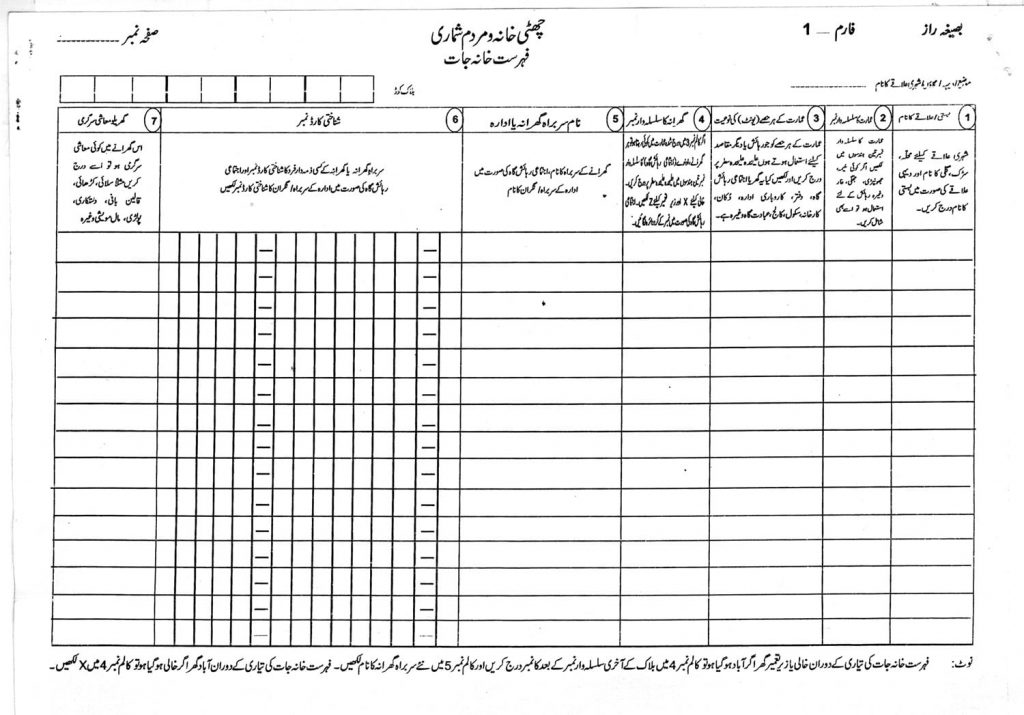 بصیغہ راز
فارم — 1
چھٹی خانہ و مردم شماری
فہرست خانہ جات
صفحہ نمبر
بلاک کوڈ
1 بستی / علاقے کا نام
شہری علاقے کیلئے محلہ،
سڑک، گلی کا نام اور دیہی
علاقے کی صورت میں بستی
کا نام درج کریں۔
2 عمارت کا سلسلہ وار نمبر
عمارت کا سلسلہ وار
نمبر تین ہندسوں میں
لکھیں اگر کوئی خیمہ
جھونپڑی، جھگی، غار
وغیرہ رہائش کے لئے
استعمال ہو تو اسے بھی
شامل کریں۔
3 عمارت کے ہر حصے (یونٹ) کی نوعیت
عمارت کے ہر حصے کو جو رہائش یا دیگر مقاصد
کیلئے استعمال ہوتے ہوں علیحدہ علیحدہ سطر پر
درج کریں اور لکھیں کہ آیا یہ گھر یا اجتماعی رہائش
گاہ، دفتر، کاروباری ادارہ، دکان،
کارخانہ، سکول، کالج، عبادت گاہ وغیرہ ہے۔
4 گھرانہ کا سلسلہ وار نمبر
5 نام سربراہ گھرانہ یا ادارہ
گھرانے کے سربراہ کا نام، اجتماعی رہائش گاہ کی صورت میں
ادارہ کے سربراہ / نگران کا نام
6 شناختی کارڈ نمبر
سربراہ گھرانہ یا گھرانہ کے کسی ذمہ دار فرد کا شناختی کارڈ نمبر اور اجتماعی
رہائش گاہ کی صورت میں ادارہ کے سربراہ / نگران کا شناختی کارڈ نمبر لکھیں
7 گھریلو معاشی سرگرمی
اس گھرانے میں کوئی معاشی
سرگرمی ہو تو اسے درج
کریں مثلاً سلائی، کڑھائی،
قالین بافی، دستکاری،
پولٹری، مال مویشی وغیرہ
نوٹ: فہرست خانہ جات کی تیاری کے دوران خالی یا زیر تعمیر گھر اگر آباد ہو گیا ہو تو کالم نمبر 4 میں بلاک کے آخری سلسلہ وار نمبر کے بعد کا نمبر درج کریں اور کالم نمبر 5 میں نئے سربراہ گھرانہ کا نام لکھیں۔ فہرست خانہ جات کی تیاری کے دوران آباد گھر اگر خالی ہو گیا ہو تو کالم نمبر 4 میں X لکھیں۔